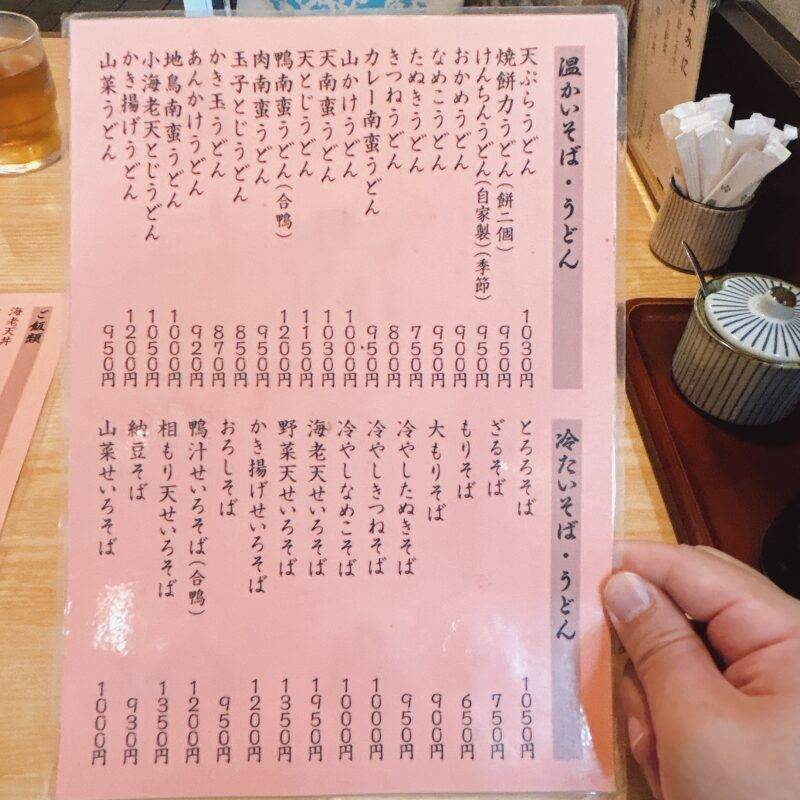 温かいそば・うどん
天ぷらうどん 1030円
焼餅力うどん(餅二個) 950円
けんちんうどん(自家製)(季節) 950円
おかめうどん 900円
なめこうどん 950円
たぬきうどん 750円
きつねうどん 800円
カレー南蛮うどん 950円
山かけうどん 1000円
天南蛮うどん 1030円
天とじうどん 1150円
鴨南蛮うどん(合鴨) 1200円
肉南蛮うどん 950円
玉子とじうどん 850円
かき玉うどん 870円
あんかけうどん 920円
地鳥南蛮うどん 1000円
小海老天とじうどん 1050円
かき揚げうどん 1200円
山菜うどん 950円
冷たいそば・うどん
とろろそば 1050円
ざるそば 750円
もりそば 650円
大もりそば 900円
冷やしたぬきそば 950円
冷やしきつねそば 1000円
冷やしなめこそば 1000円
海老天せいろそば 1950円
野菜天せいろそば 1350円
かき揚げせいろそば 1200円
おろしそば 950円
鴨汁せいろそば(合鴨) 1200円
相もり天せいろそば 1350円
納豆そば 930円
山菜せいろそば 1000円
ご飯類
海老天丼